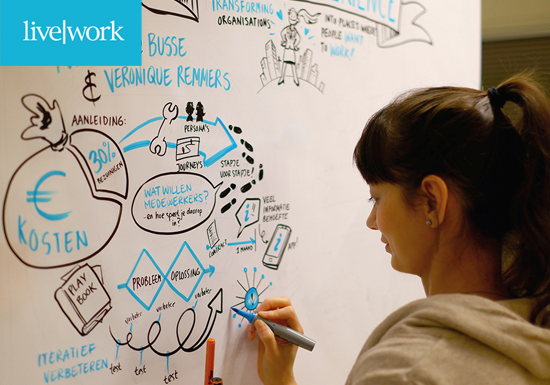 live|work
TRANSFORMING
ORGANISATIONS
INTO PLACES WHERE
PEOPLE WANT
TO WORK!
BUSSE
&
VERONIQUE REMMERS
AANLEIDING:
30%
BEZUINIGEN
€
KOSTEN
PERSONA'S
JOURNEYS
STAPJE
VOOR STAPJE!
WAT WILLEN
MEDEWERKERS?
- en hoe speel je daarop
in?
VEEL
INFORMATIE
BEHOEFTE
CONTRACT
1 MAAND
APP!
PLAY
BOOK
PROBLEEM
OPLOSSING
verbeter
verbeter
verbeter
test
test
test
ITERATIEF
VERBETEREN